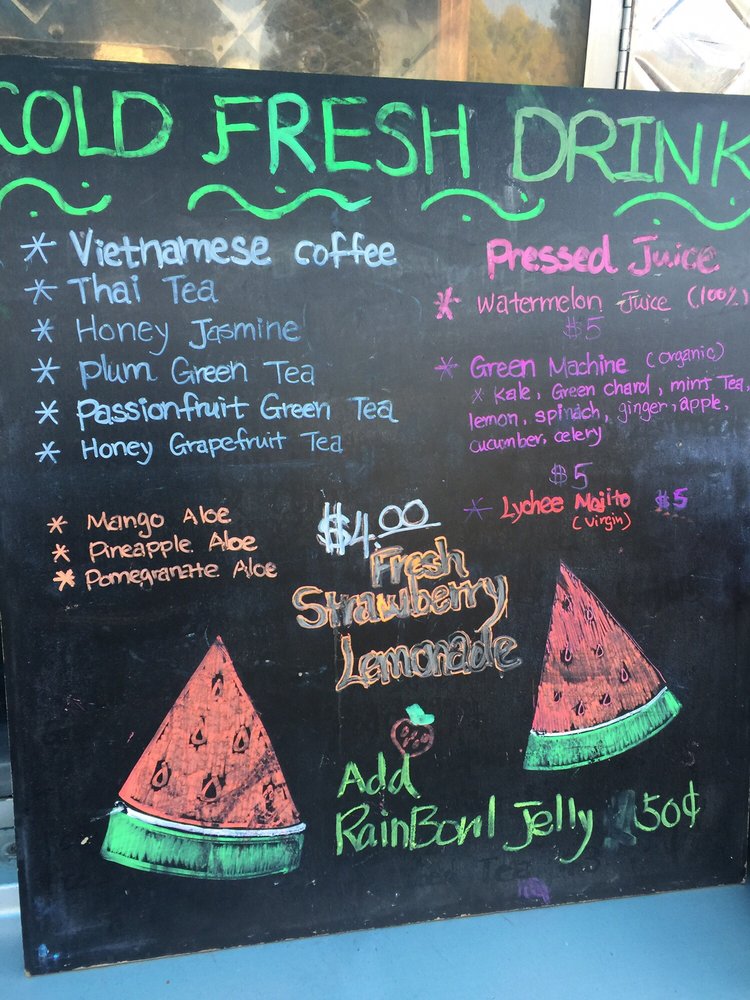 COLD FRESH DRINK
* Vietnamese coffee
* Thai Tea
* Honey Jasmine
* Plum Green Tea
* Passionfruit Green Tea
* Honey Grapefruit Tea
* Mango Aloe
* Pineapple Aloe
* Pomegranate Aloe
$4.00
Fresh
Strawberry
Lemonade
Pressed Juice
* Watermelon Juice (100%)
$5
* Green Machine (organic)
x Kale, Green chard, mint Tea,
lemon, spinach, ginger, apple,
cucumber, celery
$5
* Lychee Mojito $5
(virgin)
Add
RainBowl Jelly 50¢